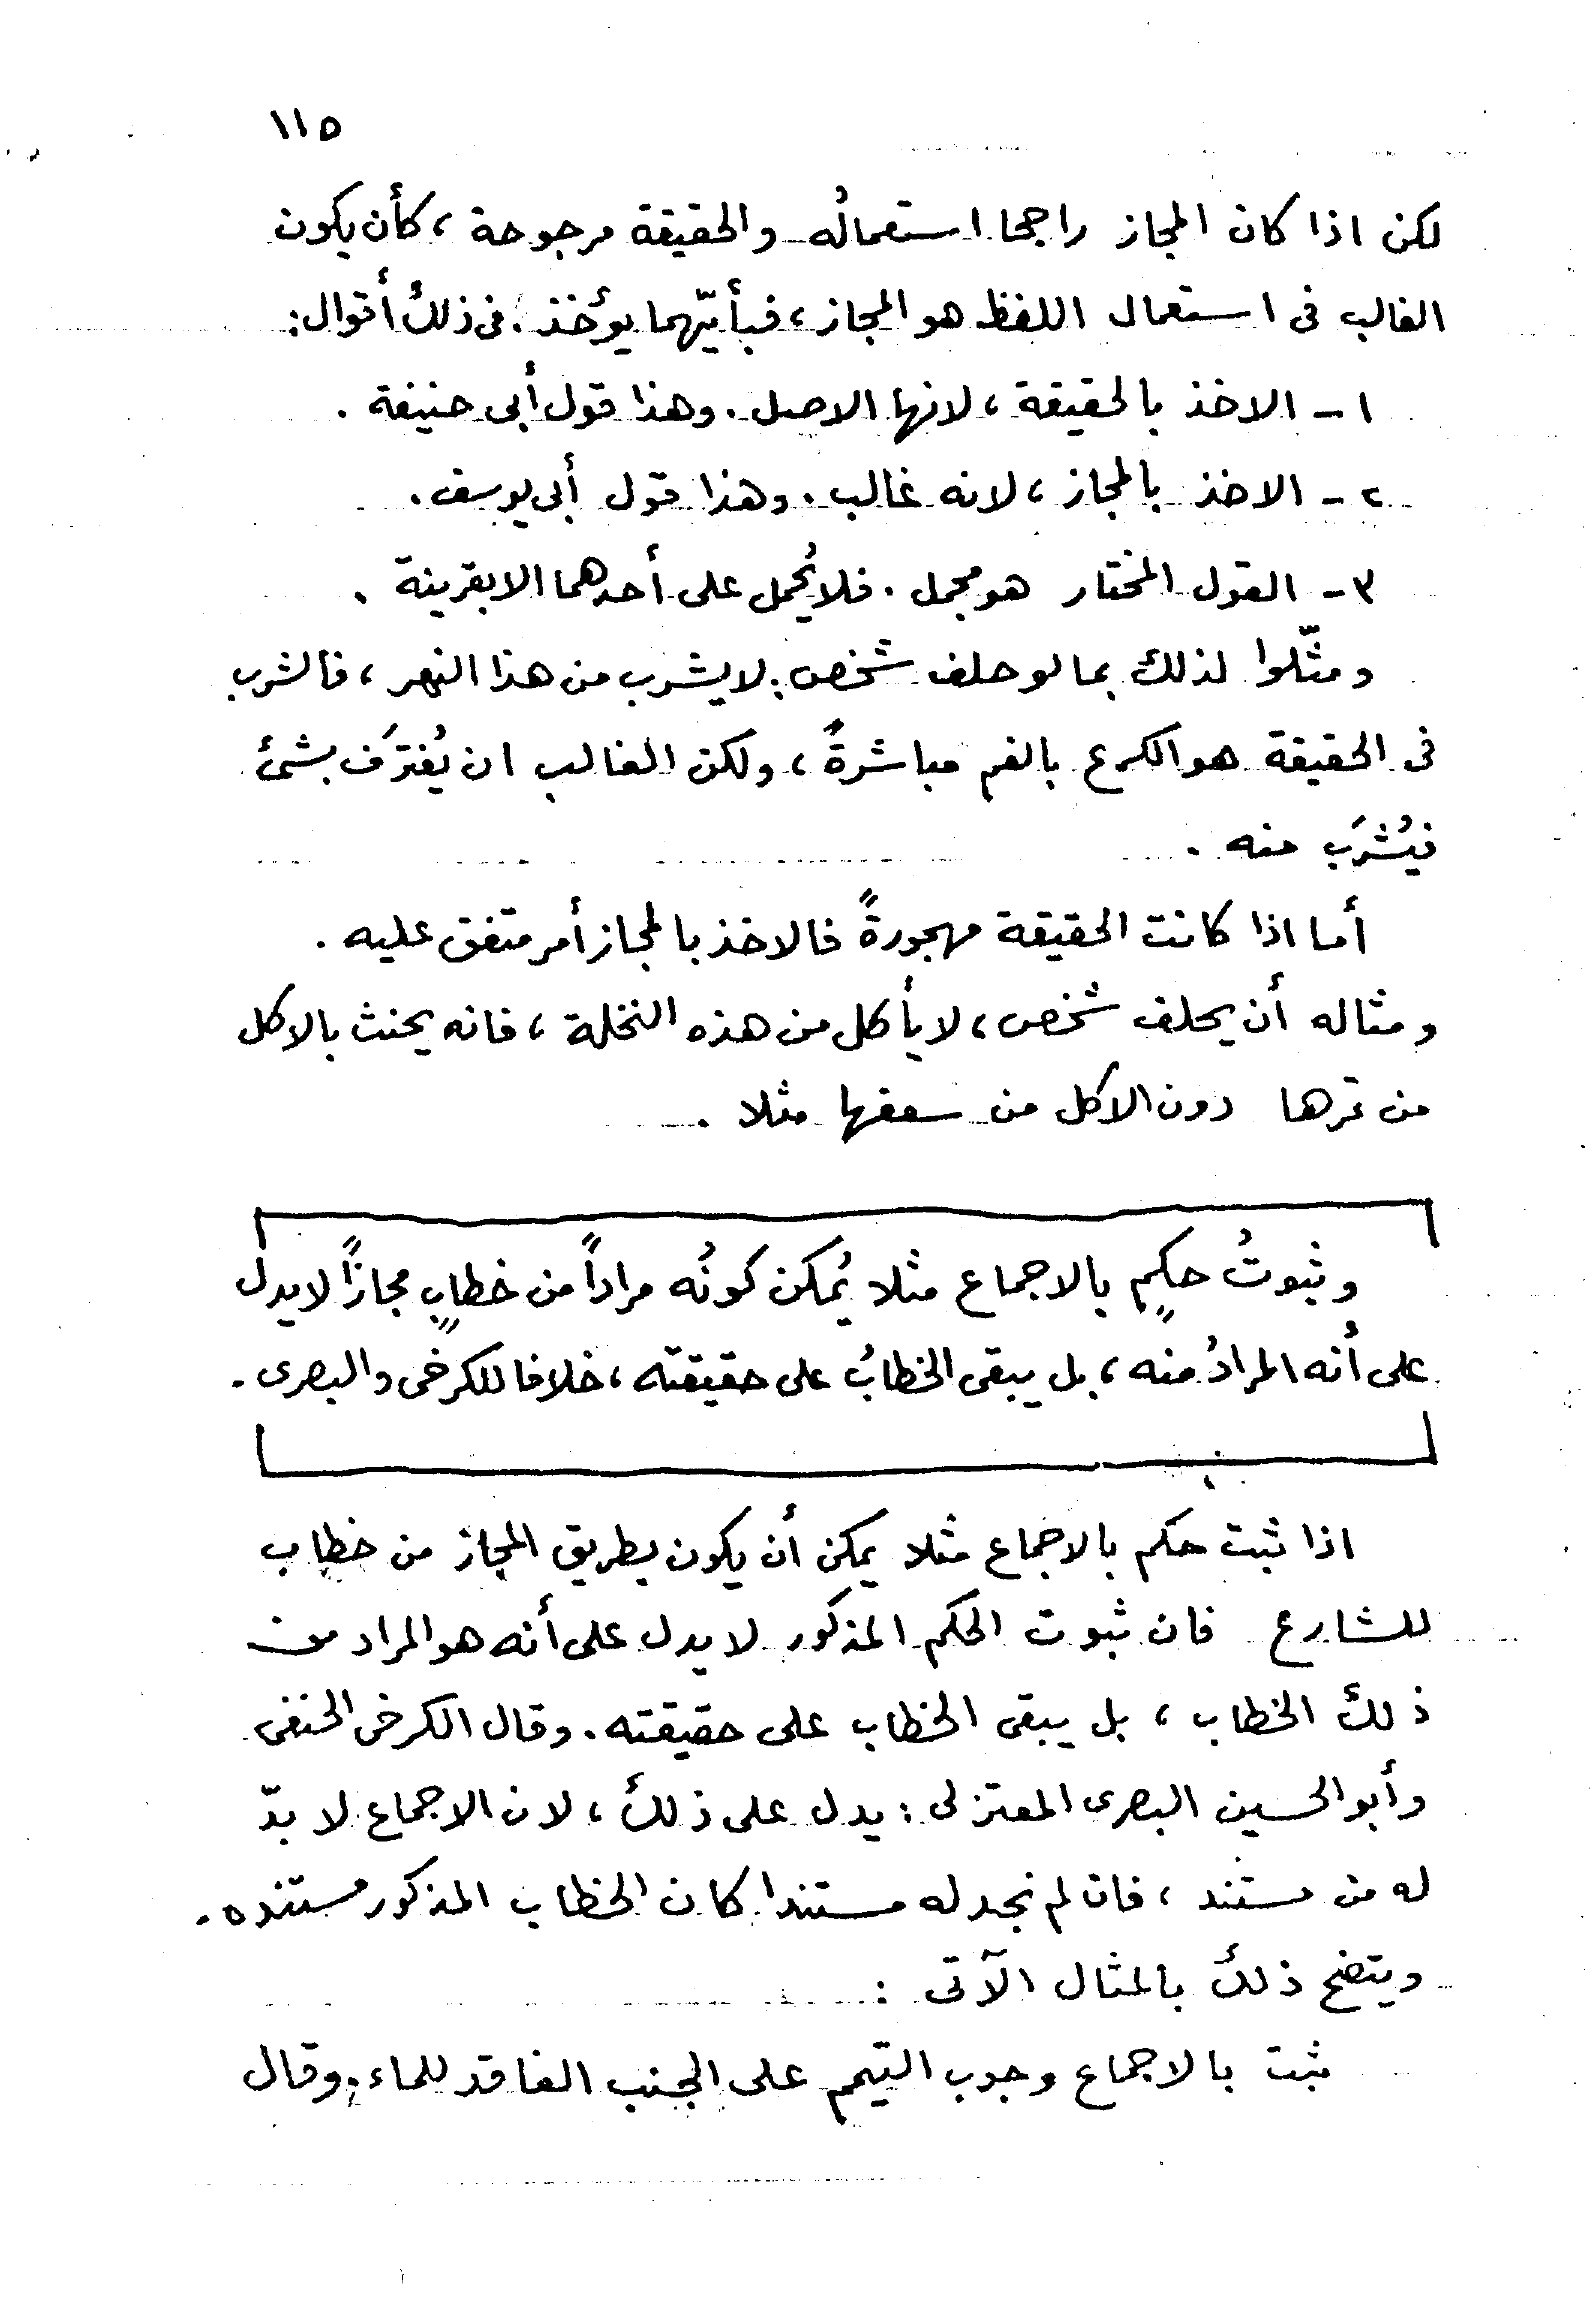 ١١٥
لكن اذا كان المجاز راجحا استعمالُه والحقيقة مرجوحة ، كأن يكون
الغالب فى استعمال اللفظ هو المجاز ، فبأيّهما يؤخذ . فى ذلك أقوال :
١ - الاخذ بالحقيقة ، لانها الاصل . وهذا قول أبى حنيفة .
٢ - الاخذ بالمجاز ، لانه غالب . وهذا قول أبى يوسف .
٣ - القول المختار هو مجمل . فلا يُحمل على أحدهما الا بقرينة .
ومثّلوا لذلك بما لو حلف شخص : لا يشرب من هذا النهر ، فالشرب
فى الحقيقة هو الكرع بالفم مباشرةً ، ولكن الغالب ان يُغترَف بشئ
فيُشرَب منه .
أما اذا كانت الحقيقة مهجورةً فالاخذ بالمجاز أمر متفق عليه .
ومثاله أن يحلف شخص ، لا يأكل من هذه النخلة ، فانه يحنث بالاكل
من تمرها دون الاكل من سعفها مثلا .
وثبوتُ حكمٍ بالاجماع مثلا يُمكن كونُه مراداً من خطابٍ مجازاً لا يدل
على أنه المرادُ منه ، بل يبقى الخطابُ على حقيقته ، خلافا للكرخى والبصرى .
اذا ثبت حكم بالاجماع مثلا يمكن أن يكون بطريق المجاز من خطاب
للشارع فان ثبوت الحكم المذكور لا يدل على أنه هو المراد من
ذلك الخطاب ، بل يبقى الخطاب على حقيقته . وقال الكرخى الحنفى
وأبو الحسين البصرى المعتزلى : يدل على ذلك ، لان الاجماع لا بدّ
له من مستند ، فان لم نجد له مستندا كان الخطاب المذكور مستنده .
ويتضح ذلك بالمثال الآتى :
ثبت بالاجماع وجوب التيمم على الجنب الفاقد للماء . وقال